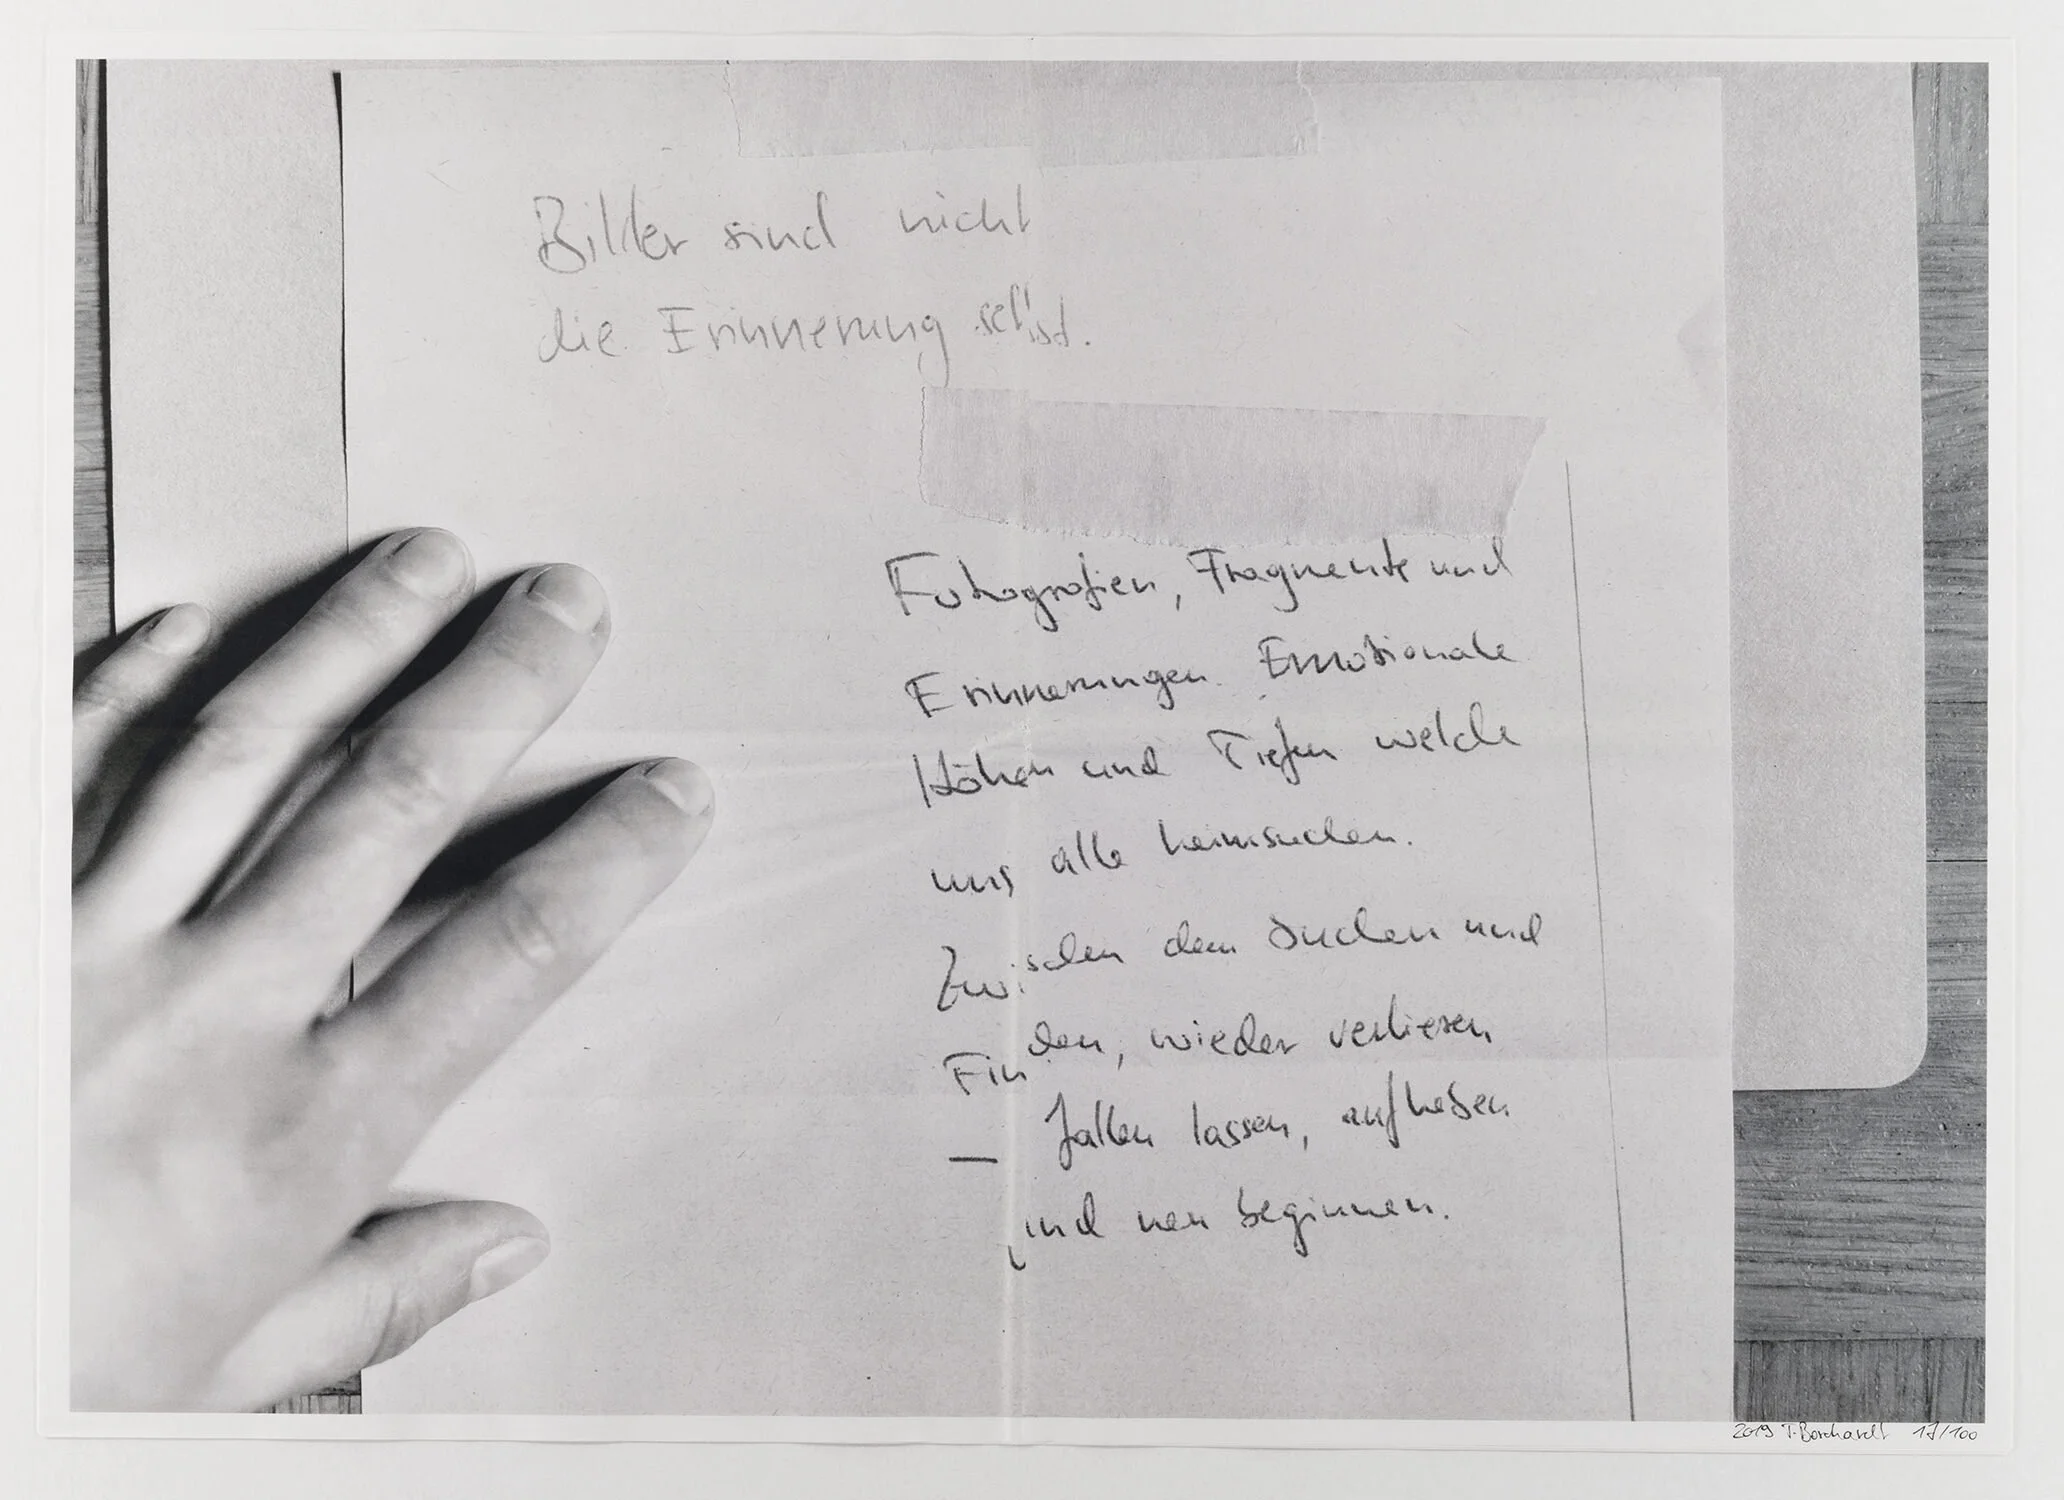 Bilder sind nicht
die Erinnerung selbst.
Fotografien, Fragmente und
Erinnerungen. Emotionale
Höhen und Tiefen welche
uns alle heimsuchen.
Zwischen dem Suchen und
Finden, wieder verlieren
— fallen lassen, aufheben
und neu beginnen.
2019 T. Borchardt 17/100